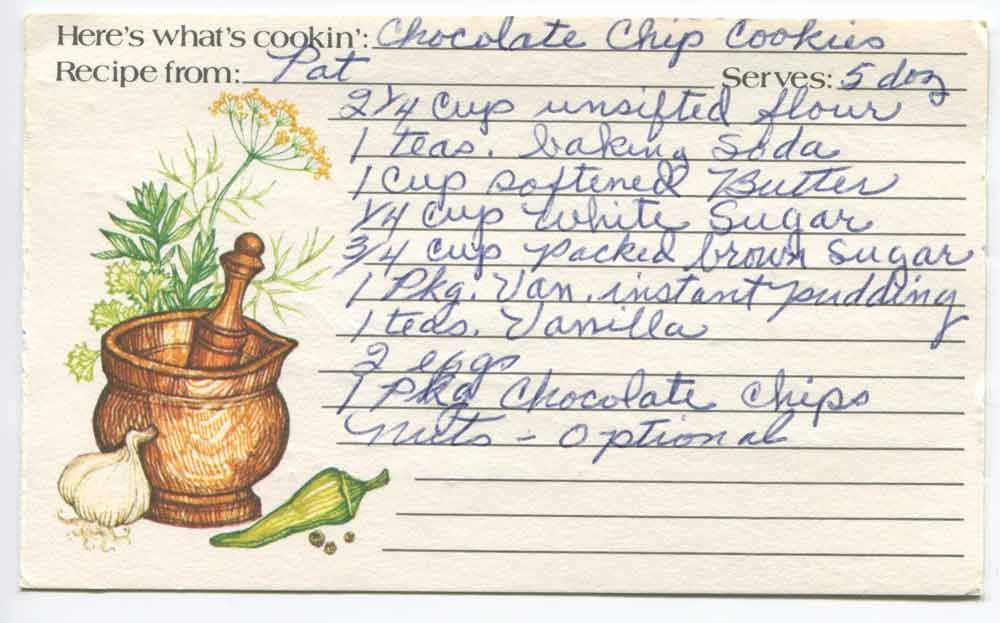 Here's what's cookin': Chocolate Chip Cookies
Recipe from: Pat Serves: 5 doz
2 1/4 Cup unsifted flour
1 teas. baking Soda
1 Cup softened Butter
1/4 cup white Sugar
3/4 cup packed brown Sugar
1 Pkg. Van. instant pudding
1 teas. Vanilla
2 eggs
1 Pkg Chocolate Chips
Nuts - Optional